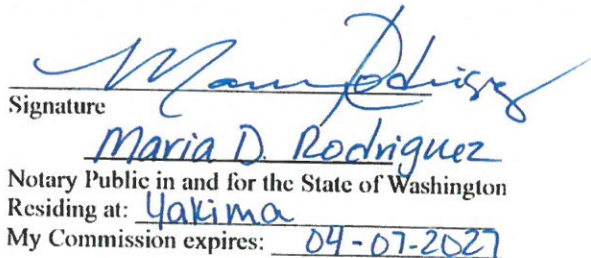 Maria Rodriguez
Signature
Maria D. Rodriguez
Notary Public in and for the State of Washington
Residing at: Yakima
My Commission expires: 04-07-2027